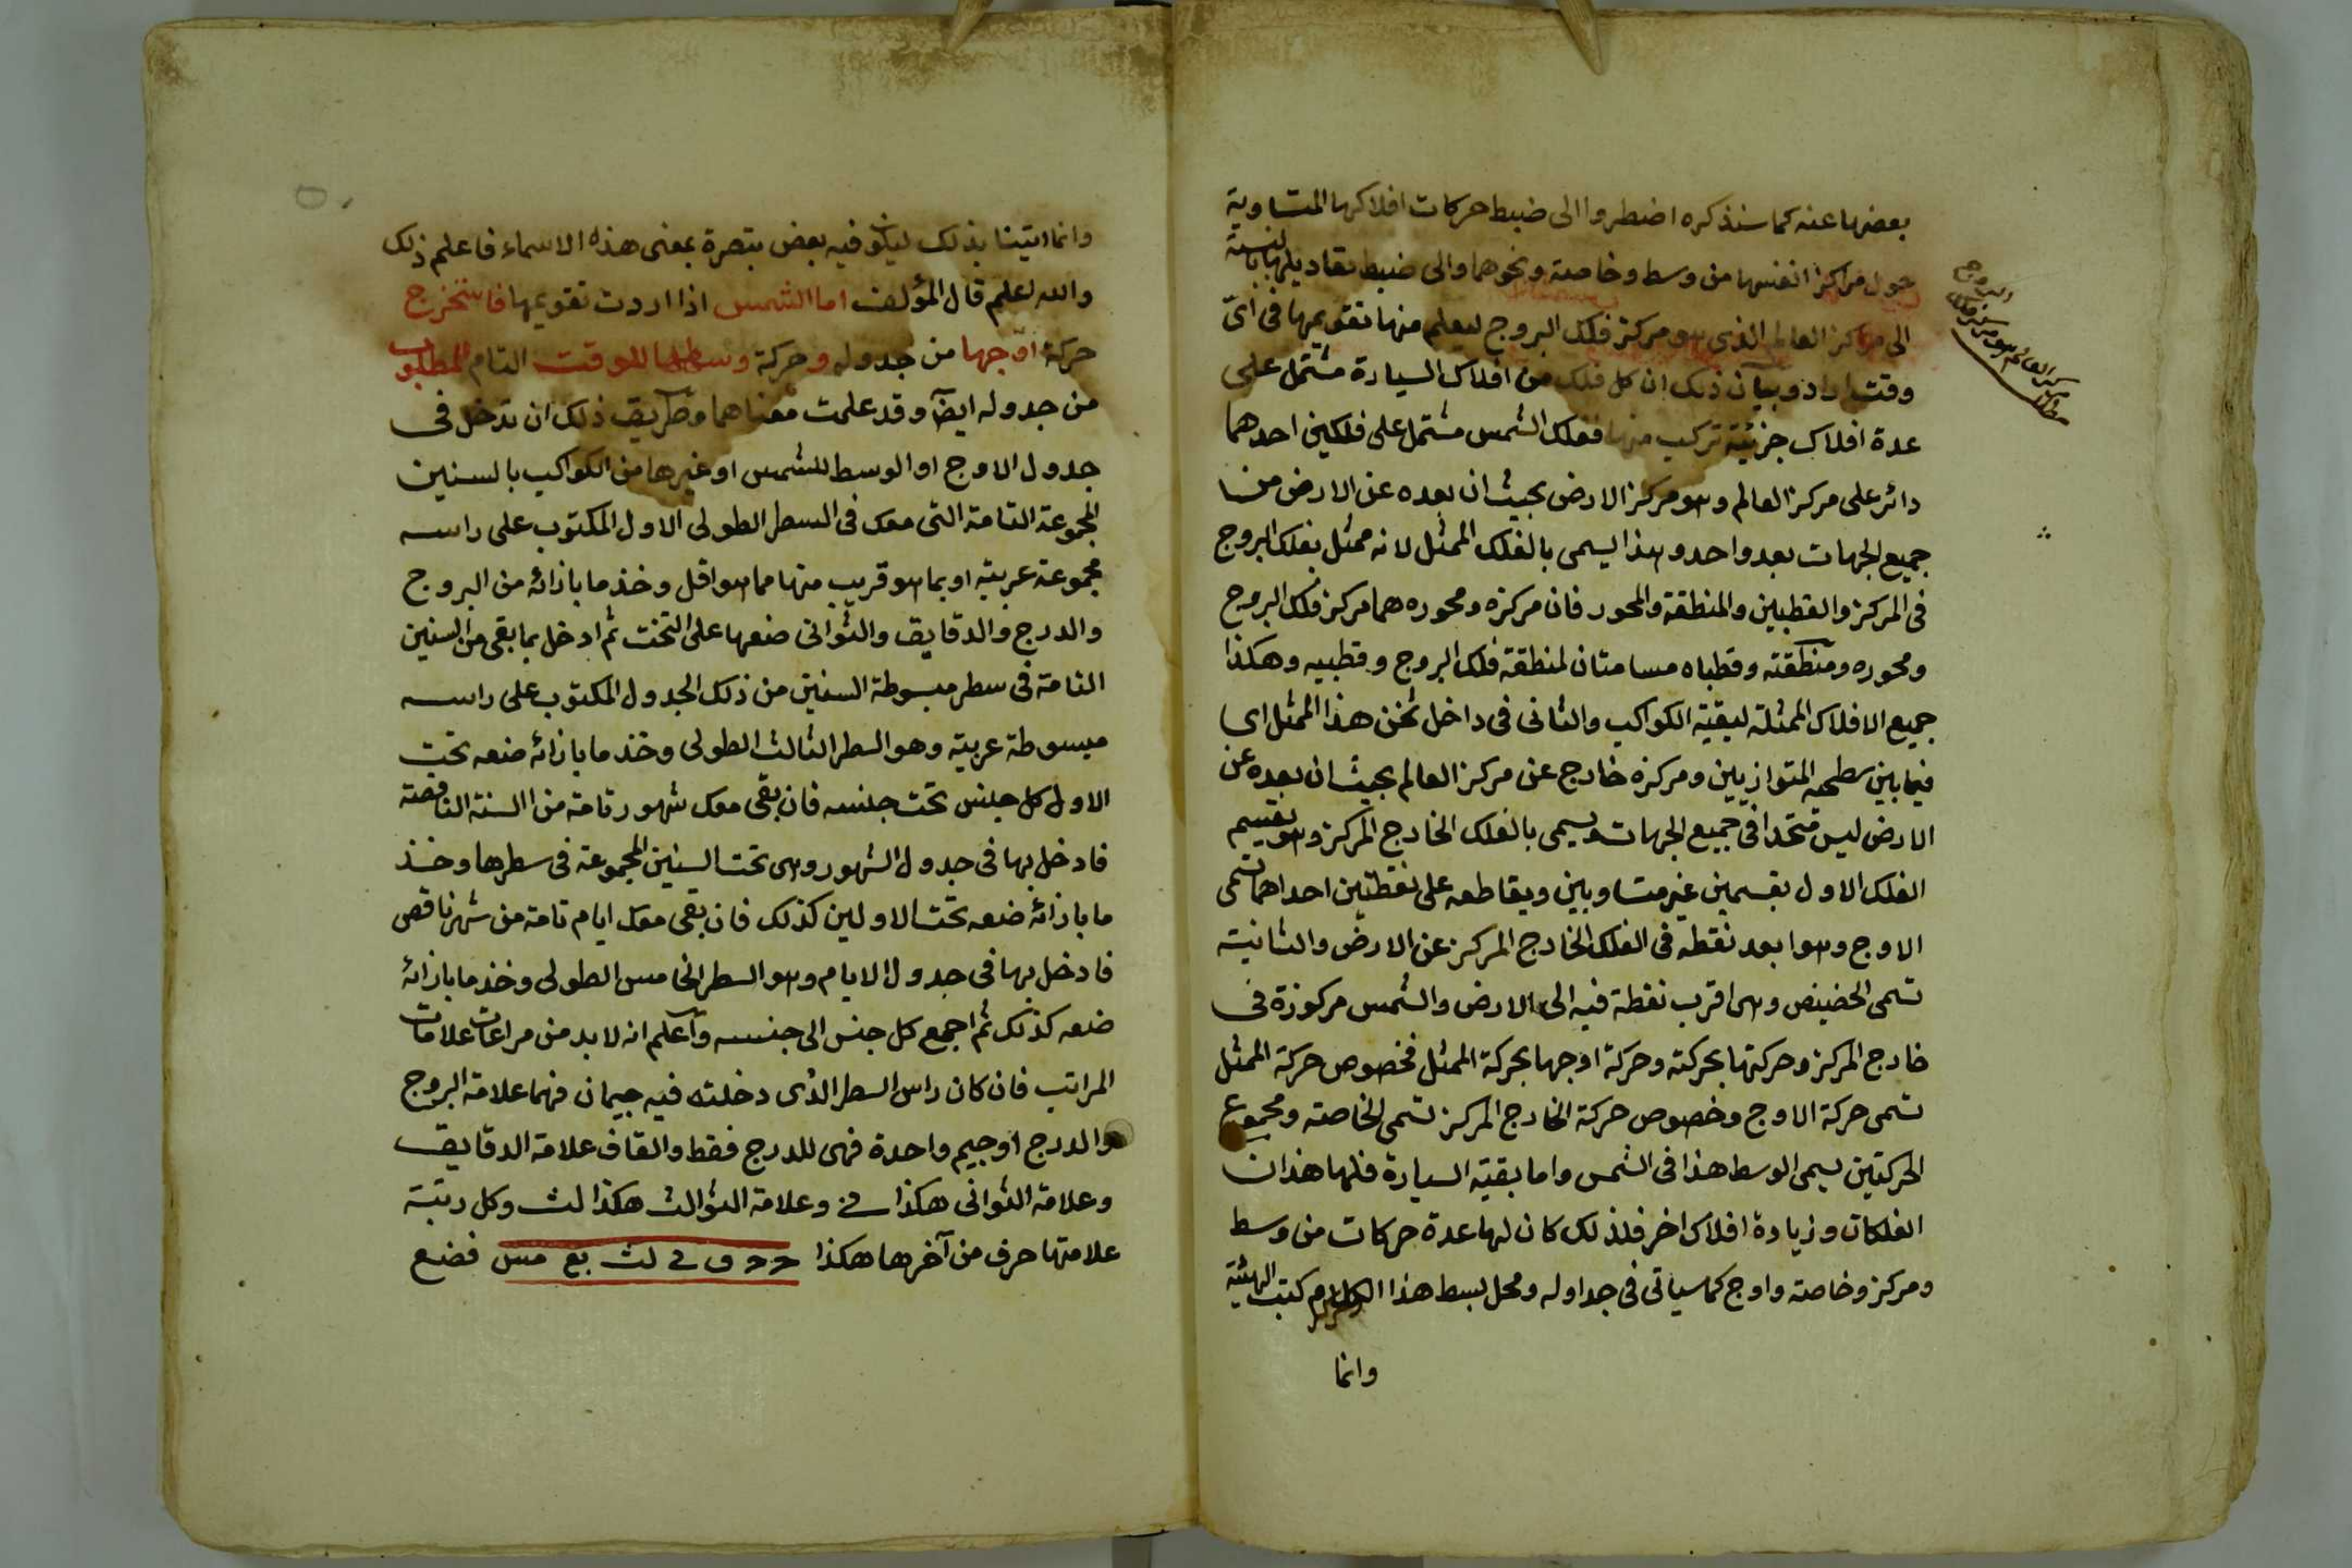 بعضها عنه كما سنذكره اضطروا الى ضبط حركات افلاكها المتساوية
حول مراكز انفسها من وسط وخاصة ونحوهما والى ضبط تعاديلها بالنسبة
الى مركز العالم الذى هو مركز فلك البروج ليعلم منها تقويمها فى اىّ
وقت اراد وبيان ذلك ان كل فلك من افلاك السيارة مشتمل على
عدة افلاك جزئية تركب منها ففلك الشمس مشتمل على فلكين احدهما
دائر على مركز العالم وهو مركز الارض بحيث ان بعده عن الارض من
جميع الجهات بعد واحد وهذا يسمى بالفلك الممثل لانه ممثل بفلك البروج
فى المركز والقطبين والمنطقة والمحور فان مركزه ومحوره هما مركز فلك البروج
ومحوره ومنطقته وقطباه مسامتان لمنطقة فلك البروج وقطبيه وهكذا
جميع الافلاك الممثلة لبقية الكواكب والثانى فى داخل ثخن هذا الممثل اى
فيما بين سطحيه المتوازيين ومركزه خارج عن مركز العالم بحيث ان بعده عن
الارض ليس متحدا فى جميع الجهات ويسمى بالفلك الخارج المركز وهو يقسم
الفلك الاول بقسمين غير متساويين ويقاطعه على نقطتين احداهما تسمى
الاوج وهو ابعد نقطة فى الفلك الخارج المركز عن الارض والثانية
تسمى الحضيض وهى اقرب نقطة فيه الى الارض والشمس مركوزة فى
خارج المركز وحركتها بحركته وحركة اوجها بحركة الممثل فخصوص حركة الممثل
تسمى حركة الاوج وخصوص حركة الخارج المركز تسمى الخاصة ومجموع
الحركتين يسمى الوسط هذا فى الشمس واما بقية السيارة فلها هذان
الفلكان وزيادة افلاك اخر فلذلك كان لها عدة حركات من وسط
ومركز وخاصة واوج كما سياتى فى جداوله ومحل بسط هذا الكلام كتب الهيئة
وانما
وانما اتينا بذلك ليكون فيه بعض تبصرة بمعنى هذه الاسماء فاعلم ذلك
والله اعلم قال المؤلف اما الشمس اذا اردت تقويمها فاستخرج
حركة اوجها من جدوله وحركة وسطها للوقت التام المطلوب
من جدوله ايضا وقد علمت معناهما وطريق ذلك ان تدخل فى
جدول الاوج او الوسط للشمس او غيرها من الكواكب بالسنين
المجموعة التامة التى معك فى السطر الطولى الاول المكتوب على راسه
مجموعة عربية او بما هو قريب منها مما هو اقل وخذ ما بازائه من البروج
والدرج والدقايق والثوانى ضعها على التخت ثم ادخل بما بقى من السنين
التامة فى سطر مبسوطة السنين من ذلك الجدول المكتوب على راسه
مبسوطة عربية وهو السطر الثالث الطولى وخذ ما بازائه ضعه تحت
الاول كل جنس تحت جنسه فان بقى معك شهور تامة من السنة الناقصة
فادخل بها فى جدول الشهور وهى تحت السنين المجموعة فى سطرها وخذ
ما بازائه ضعه تحت الاولين كذلك فان بقى معك ايام تامة من شهر ناقص
فادخل بها فى جدول الايام وهو السطر الخامس الطولى وخذ ما بازائه
ضعه كذلك ثم اجمع كل جنس الى جنسه واعلم انه لا بد من مراعات علامات
المراتب فان كان راس السطر الذى دخلته فيه جيمان فهما علامة البروج
والدرج او جيم واحدة فهى للدرج فقط والقاف علامة الدقايق
وعلامة الثوانى هكذا نى وعلامة الثوالث هكذا لث وكل رتبة
علامتها حرف من آخرها هكذا لث بع مس فضع